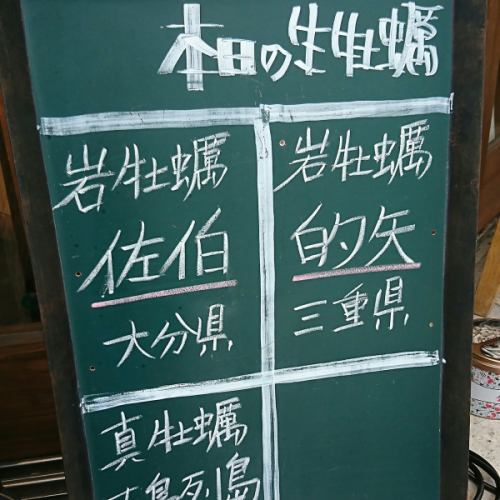 本日の生牡蠣
岩牡蠣
佐伯
大分県
岩牡蠣
的矢
三重県
真牡蠣
島列島